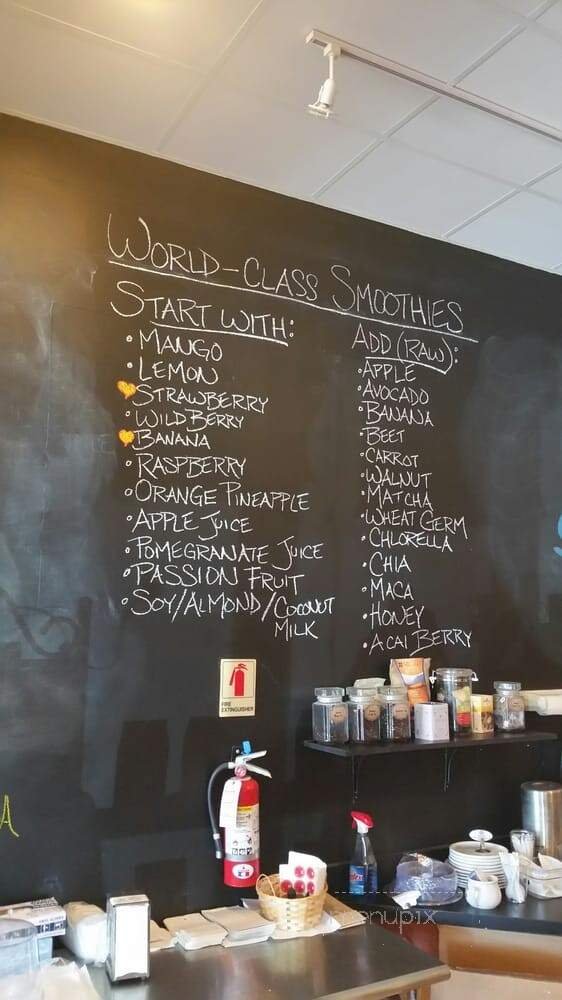 WORLD-CLASS SMOOTHIES
START WITH:
• MANGO
• LEMON
STRAWBERRY
• WILDBERRY
BANANA
• RASPBERRY
• ORANGE PINEAPPLE
• APPLE JUICE
• POMEGRANATE JUICE
• PASSION FRUIT
• SOY/ALMOND/COCONUT
MILK
ADD (RAW):
• APPLE
• AVOCADO
• BANANA
• BEET
• CARROT
• WALNUT
• MATCHA
• WHEAT GERM
• CHLORELLA
• CHIA
• MACA
• HONEY
• ACAI BERRY
FIRE
EXTINGUISHER
A
menupix